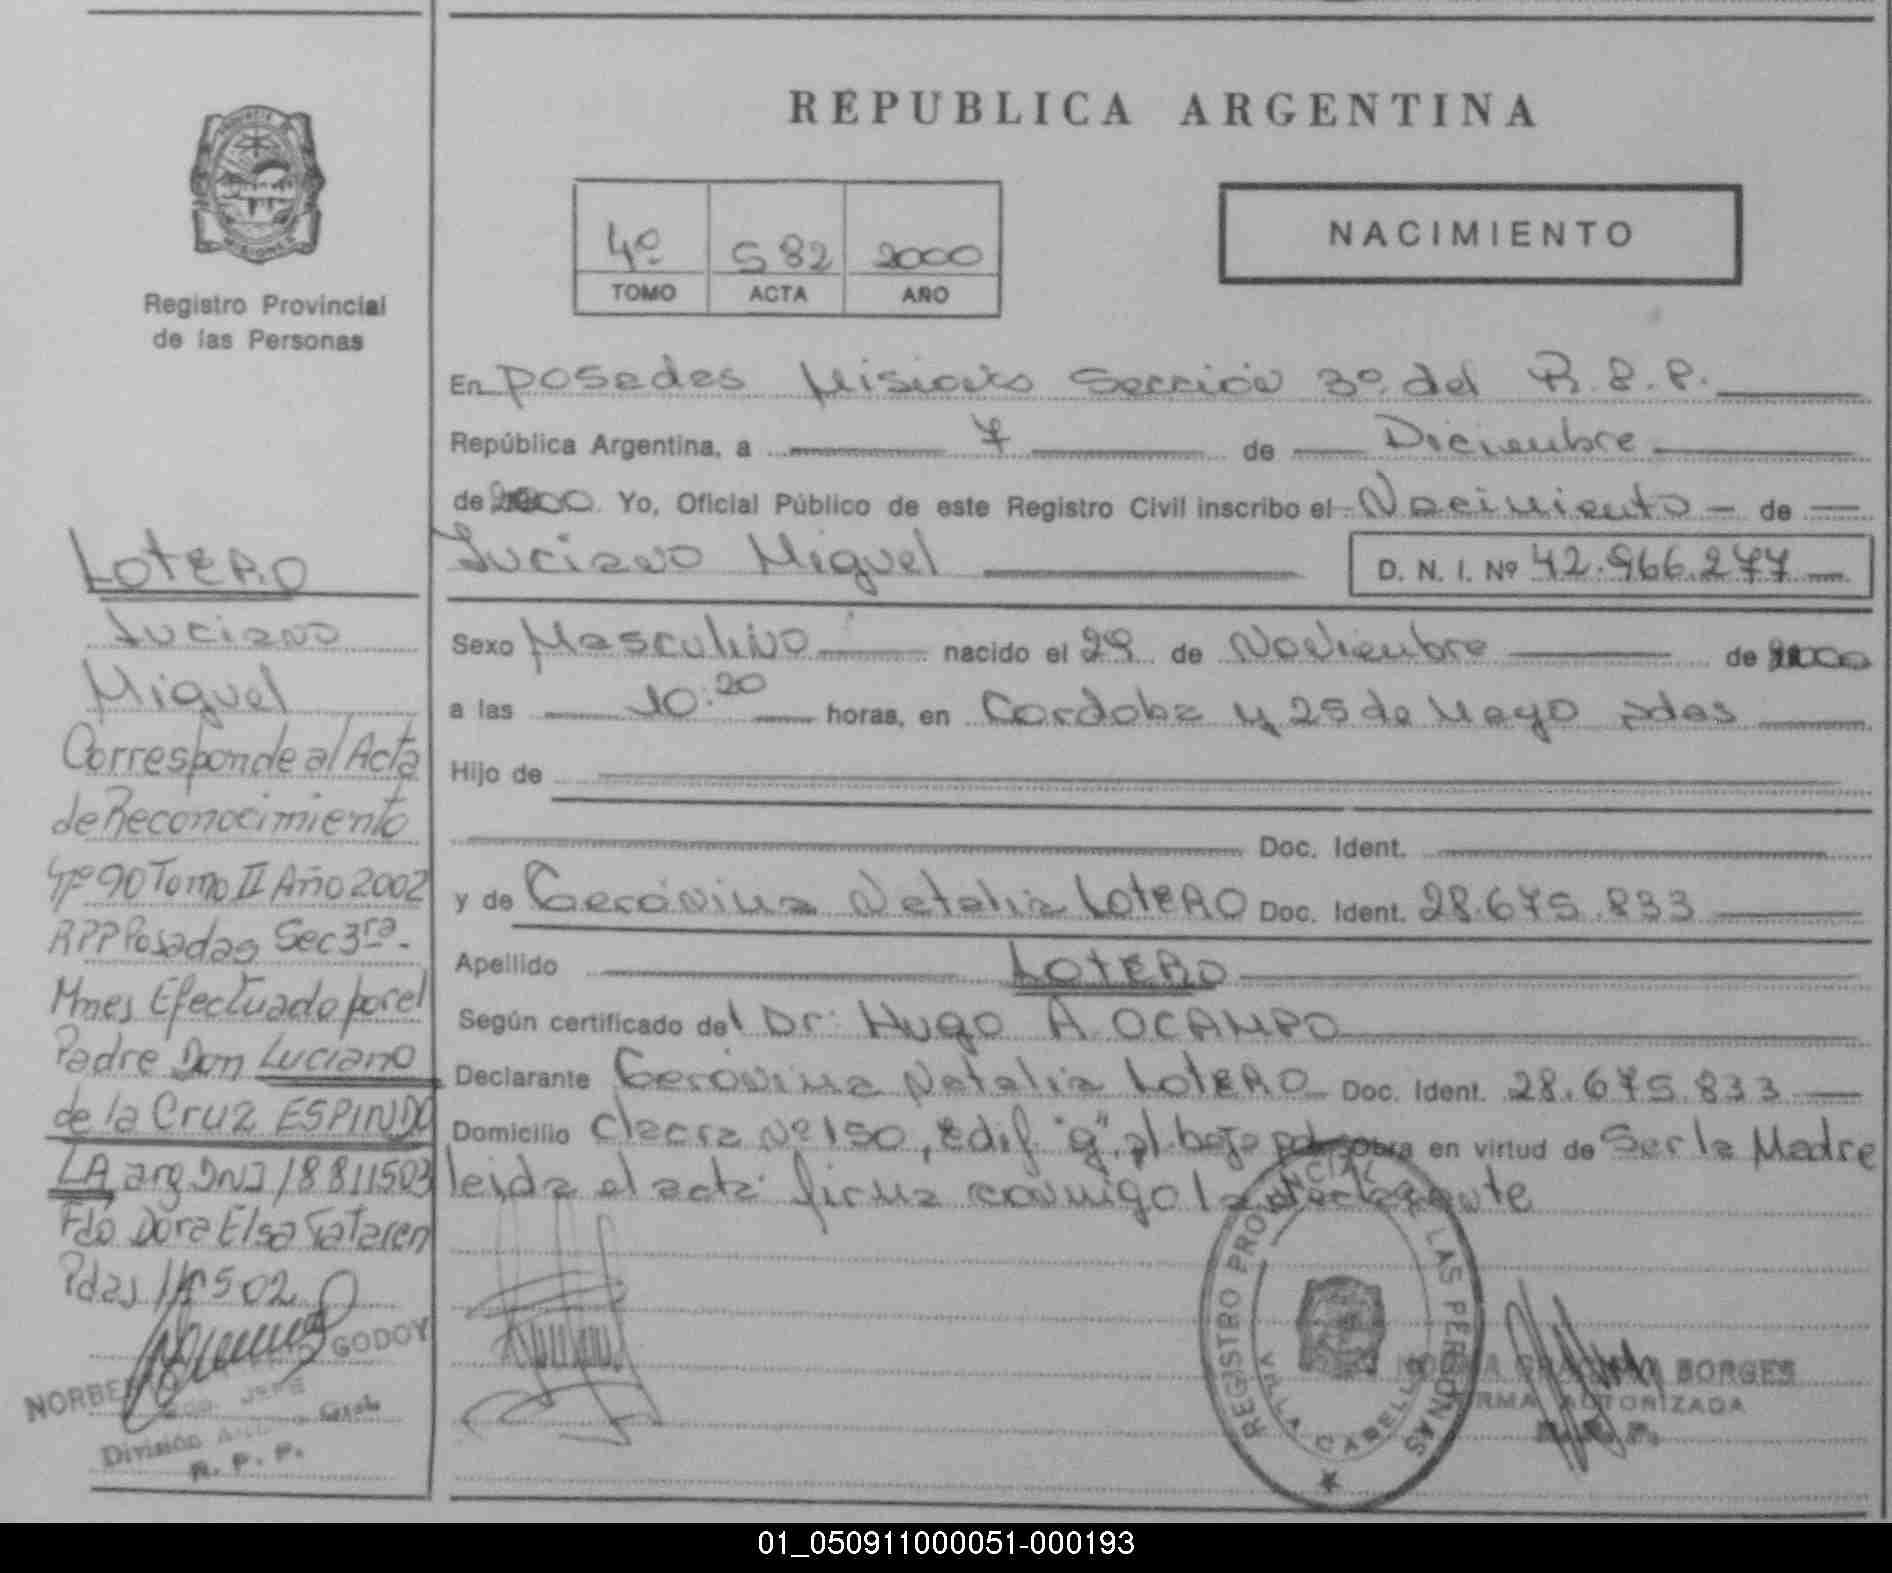 REPUBLICA ARGENTINA
NACIMIENTO
4º 582 2000
TOMO ACTA AÑO
Registro Provincial
de las Personas
En Posadas Misiones Sección 3º del R.P.P.
República Argentina, a 7 de Diciembre
de 2000 Yo, Oficial Público de este Registro Civil inscribo el Nacimiento de
Luciano Miguel D. N. I. Nº 42.966.277
Sexo Masculino nacido el 29 de Noviembre de 2000
a las 10:20 horas, en Cordoba y 25 de Mayo pdas
Hijo de
Doc. Ident.
y de Gerónima Natalia LOTERO Doc. Ident. 28.675.833
Apellido LOTERO
Según certificado del Dr: Hugo A OCAMPO
Declarante Gerónima Natalia LOTERO Doc. Ident. 28.675.833
Domicilio Chacra Nº 150, Edif "g", pl. baja pdas obra en virtud de Ser la Madre
leida el acta firma conmigo la declarante
LOTERO
Luciano
Miguel
Corresponde al Acta
de Reconocimiento
Nº 90 Tomo II Año 2002
RPP Posadas Sec 3ra.
Mnes Efectuado por el
Padre Don Luciano
de la Cruz ESPINDO
LA arg DNI 18811503
Fdo Dora Elsa
Pdas
GODOY
JEFE
División
R. P. P.
REGISTRO PROVINCIAL DE LAS PERSONAS
VILLA CABELLO
BORGES
FIRMA AUTORIZADA
01_050911000051-000193